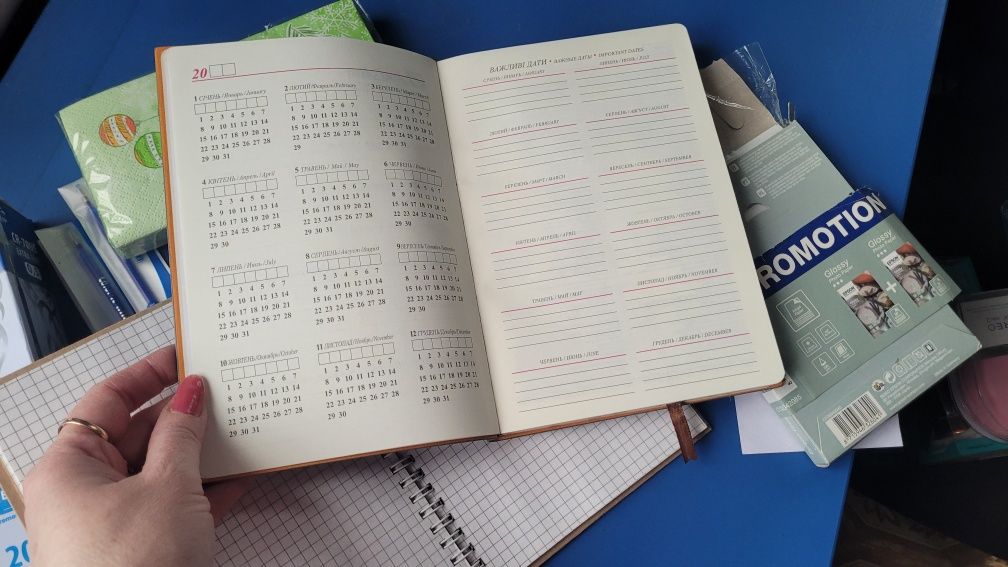 20
1 СІЧЕНЬ / Январь / January
1 2 3 4 5 6 7
8 9 10 11 12 13 14
15 16 17 18 19 20 21
22 23 24 25 26 27 28
29 30 31
2 ЛЮТИЙ / Февраль / February
1 2 3 4 5 6 7
8 9 10 11 12 13 14
15 16 17 18 19 20 21
22 23 24 25 26 27 28
29
3 БЕРЕЗЕНЬ / Март / March
1 2 3 4 5 6 7
8 9 10 11 12 13 14
15 16 17 18 19 20 21
22 23 24 25 26 27 28
29 30 31
4 КВІТЕНЬ / Апрель / April
1 2 3 4 5 6 7
8 9 10 11 12 13 14
15 16 17 18 19 20 21
22 23 24 25 26 27 28
29 30
5 ТРАВЕНЬ / Май / May
1 2 3 4 5 6 7
8 9 10 11 12 13 14
15 16 17 18 19 20 21
22 23 24 25 26 27 28
29 30 31
6 ЧЕРВЕНЬ / Июнь / June
1 2 3 4 5 6 7
8 9 10 11 12 13 14
15 16 17 18 19 20 21
22 23 24 25 26 27 28
29 30
7 ЛИПЕНЬ / Июль / July
1 2 3 4 5 6 7
8 9 10 11 12 13 14
15 16 17 18 19 20 21
22 23 24 25 26 27 28
29 30 31
8 СЕРПЕНЬ / Август / August
1 2 3 4 5 6 7
8 9 10 11 12 13 14
15 16 17 18 19 20 21
22 23 24 25 26 27 28
29 30 31
9 ВЕРЕСЕНЬ / Сентябрь / September
1 2 3 4 5 6 7
8 9 10 11 12 13 14
15 16 17 18 19 20 21
22 23 24 25 26 27 28
29 30
10 ЖОВТЕНЬ / Октябрь / October
1 2 3 4 5 6 7
8 9 10 11 12 13 14
15 16 17 18 19 20 21
22 23 24 25 26 27 28
29 30 31
11 ЛИСТОПАД / Ноябрь / November
1 2 3 4 5 6 7
8 9 10 11 12 13 14
15 16 17 18 19 20 21
22 23 24 25 26 27 28
29 30
12 ГРУДЕНЬ / Декабрь / December
1 2 3 4 5 6 7
8 9 10 11 12 13 14
15 16 17 18 19 20 21
22 23 24 25 26 27 28
29 30 31
ВАЖЛИВІ ДАТИ • ВАЖНЫЕ ДАТЫ • IMPORTANT DATES
СІЧЕНЬ / ЯНВАРЬ / JANUARY
ЛЮТИЙ / ФЕВРАЛЬ / FEBRUARY
БЕРЕЗЕНЬ / МАРТ / MARCH
КВІТЕНЬ / АПРЕЛЬ / APRIL
ТРАВЕНЬ / МАЙ / MAY
ЧЕРВЕНЬ / ИЮНЬ / JUNE
ЛИПЕНЬ / ИЮЛЬ / JULY
СЕРПЕНЬ / АВГУСТ / AUGUST
ВЕРЕСЕНЬ / СЕНТЯБРЬ / SEPTEMBER
ЖОВТЕНЬ / ОКТЯБРЬ / OCTOBER
ЛИСТОПАД / НОЯБРЬ / NOVEMBER
ГРУДЕНЬ / ДЕКАБРЬ / DECEMBER
ROMOTION
Glossy
Photo Paper
EPSON
Glossy
Photo Paper
EPSON